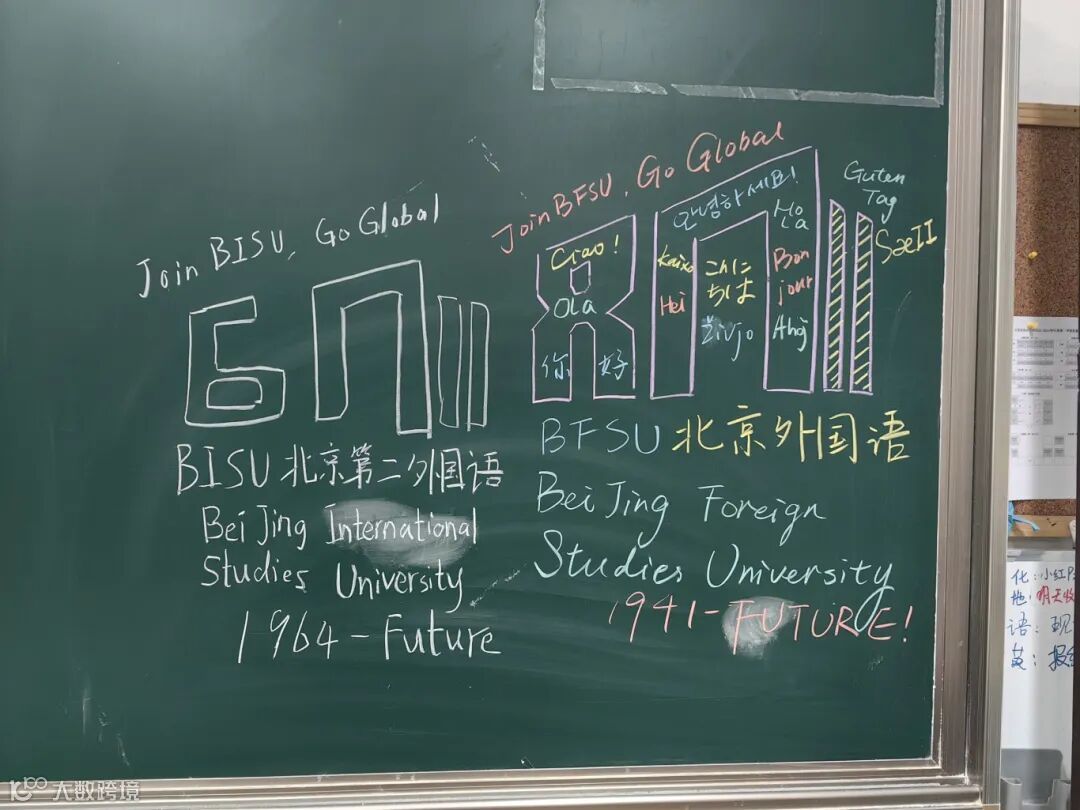 Join BISU, Go Global
BISU 北京第二外国语
BeiJing International
Studies University
1964-Future
Join BFSU, Go Global
Ciao!
Ola
你 好
안녕하세요!
Kaixo
Hei
こんに
ちは
Živjo
Bon
jour
Ahoj
Guten
Tag
BFSU 北京外国语
BeiJing Foreign
Studies University
1941-FUTURE!
化:小红
明天收
语:
英:
大数跨境